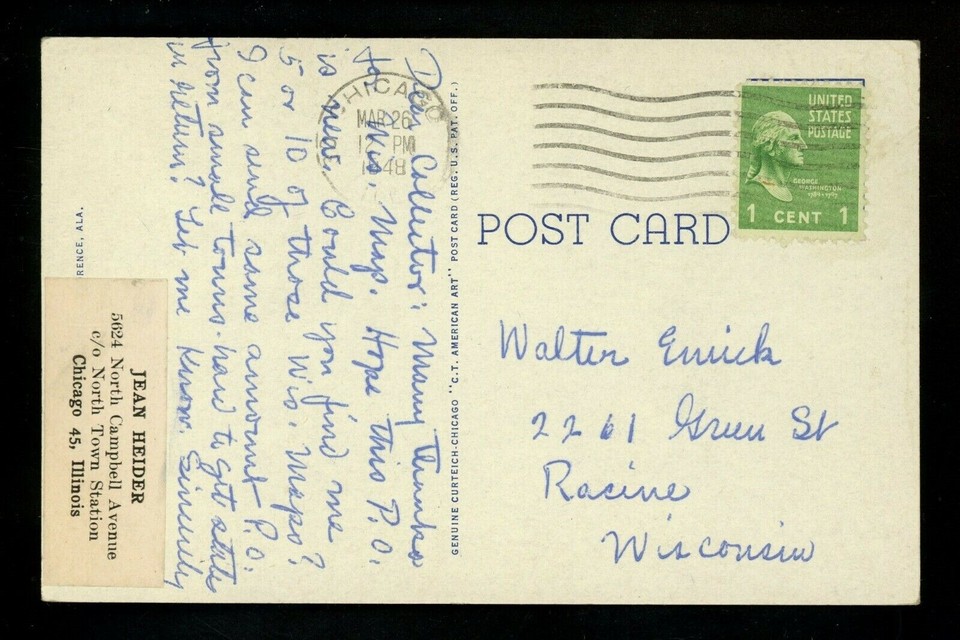 Dear Collector: Many Thanks
for Wis. Map. Hope this P.O.
is near. Could you find me
5 or 10 of those Wis. Maps?
I can send same amount P.O.
from small towns - hard to get states
in return? Let me know. Sincerely
JEAN HEIDER
5624 North Campbell Avenue
c/o North Town Station
Chicago 45, Illinois
RENCE, ALA.
GENUINE CURTEICH-CHICAGO "C.T. AMERICAN ART" POST CARD (REG. U.S. PAT. OFF.)
CHICAGO
MAR 26
PM
1948
UNITED
STATES
POSTAGE
GEORGE
WASHINGTON
1 CENT 1
POST CARD
Walter
2261 Green St
Racine
Wisconsin